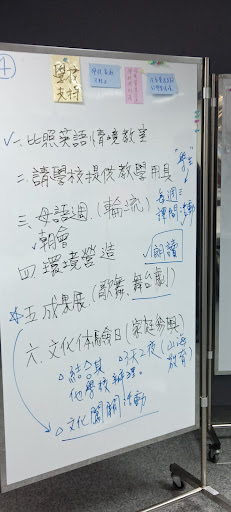 1
學校
支持
一. 比照英語情境教室
二. 請學校提供教學用具
"學生"
三. 母語週. (輪流)
每週三
禪間活動
✓朝會
✓朗讀
四 環境營造
☆五 成果展. (歌舞、舞台劇)
六. 文化体驗日 (家庭參與)
。結合其他學校辦理。
。3天2夜 (山海教育)
。文化闖關活動